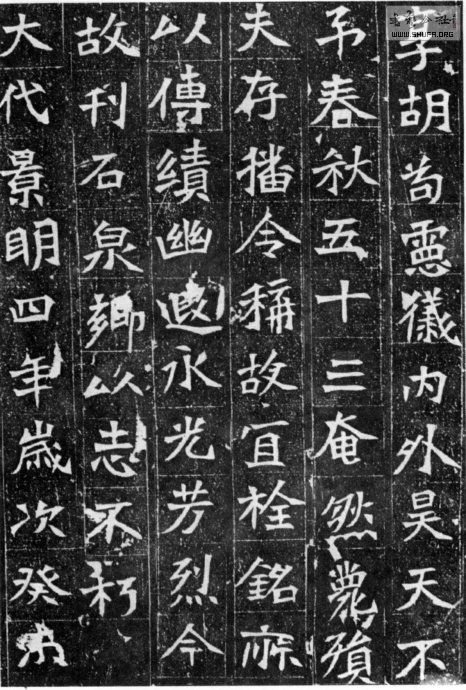 胡苟憲儀內外昊天不
弔春秋五十三奄然薨殞
夫存播令稱故宜栓銘
以傳績幽遐永光芳烈今
故刊石泉鄉以志不朽
大代景明四年歲次癸
WWW.SHUFA.ORG